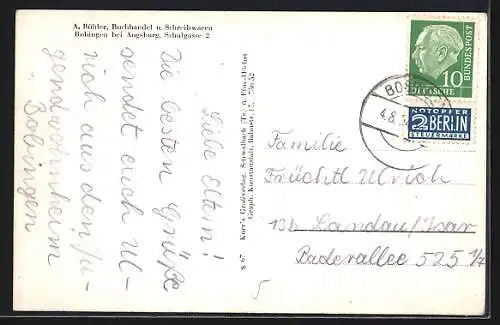 A. Bühler, Buchhandel u. Schreibwaren
Bobingen bei Augsburg, Schulgasse 2
Liebe Eltern!
Die besten Grüße
sendet euch Ul-
rich aus dem Ju-
gendwohnheim
Bobingen
S 67
Korr's Großverlag, Schwalbach
Graph. Kunstanstalt,
DEUTSCHE BUNDESPOST
10
NOTOPFER
2 BERLIN
STEUERMARKE
BO
4.8.5
Familie
Früchtl Ulrich
13b Landau/Isar
Baderallee 525 1/7
5